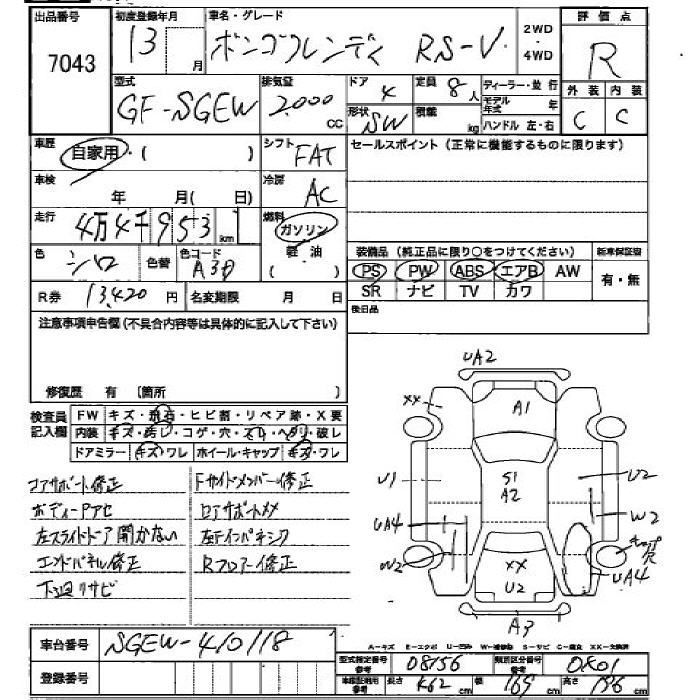 出品番号 初度登録年月 車名・グレード 2WD・4WD 評価点
7043 13 月 ボンゴフレンディ RS-V R
型式 排気量 ドア 定員 ディーラー・並行 外装 内装
GF-SGEW 2,000 cc 4 8人 モデル年式 年 C C
形状 SW 積載 kg ハンドル 左・右
車歴 自家用・( ) シフト FAT セールスポイント(正常に機能するものに限ります)
車検 年 月( 日) 冷房 AC
走行 4万4千953 km 燃料 ガソリン 軽油 ( )
色 シロ 色替 色コード A3D 装備品(純正品に限り○をつけてください) 新車保証書
PS PW ABS エアB AW 有・無
R券 13,420円 名変期限 月 日 SR ナビ TV カワ
注意事項申告欄(不具合内容等は具体的に記入して下さい) 後日品
修復歴 有 〔箇所 〕
検査員記入欄 FW キズ・飛石・ヒビ割・リペア跡・X要
内装 キズ・汚レ・コゲ・穴・スレ・ヘタリ・破レ
ドアミラー キズ・ワレ ホイール・キャップ キズ・ワレ
コアサポート修正 Fサイドメンバー修正
ボディー下アセ ロアサポートメメ
左スライドドア開かない 左Fインパネシク
エンドパネル修正 Rフロアー修正
下廻リサビ
UA2
XX A1
U1 S1 A2 U2
UA4 W2
W2 XX U2 UA4
A3
車台番号 SGEW-410118 A-キズ E-エクボ U-凹み W-補修跡 S-サビ C-腐食 XX-交換済
登録番号 型式指定番号 参考 08156 類別区分番号 参考 0201
車庫証明用 参考 長さ 462 cm 幅 169 cm 高さ 196 cm